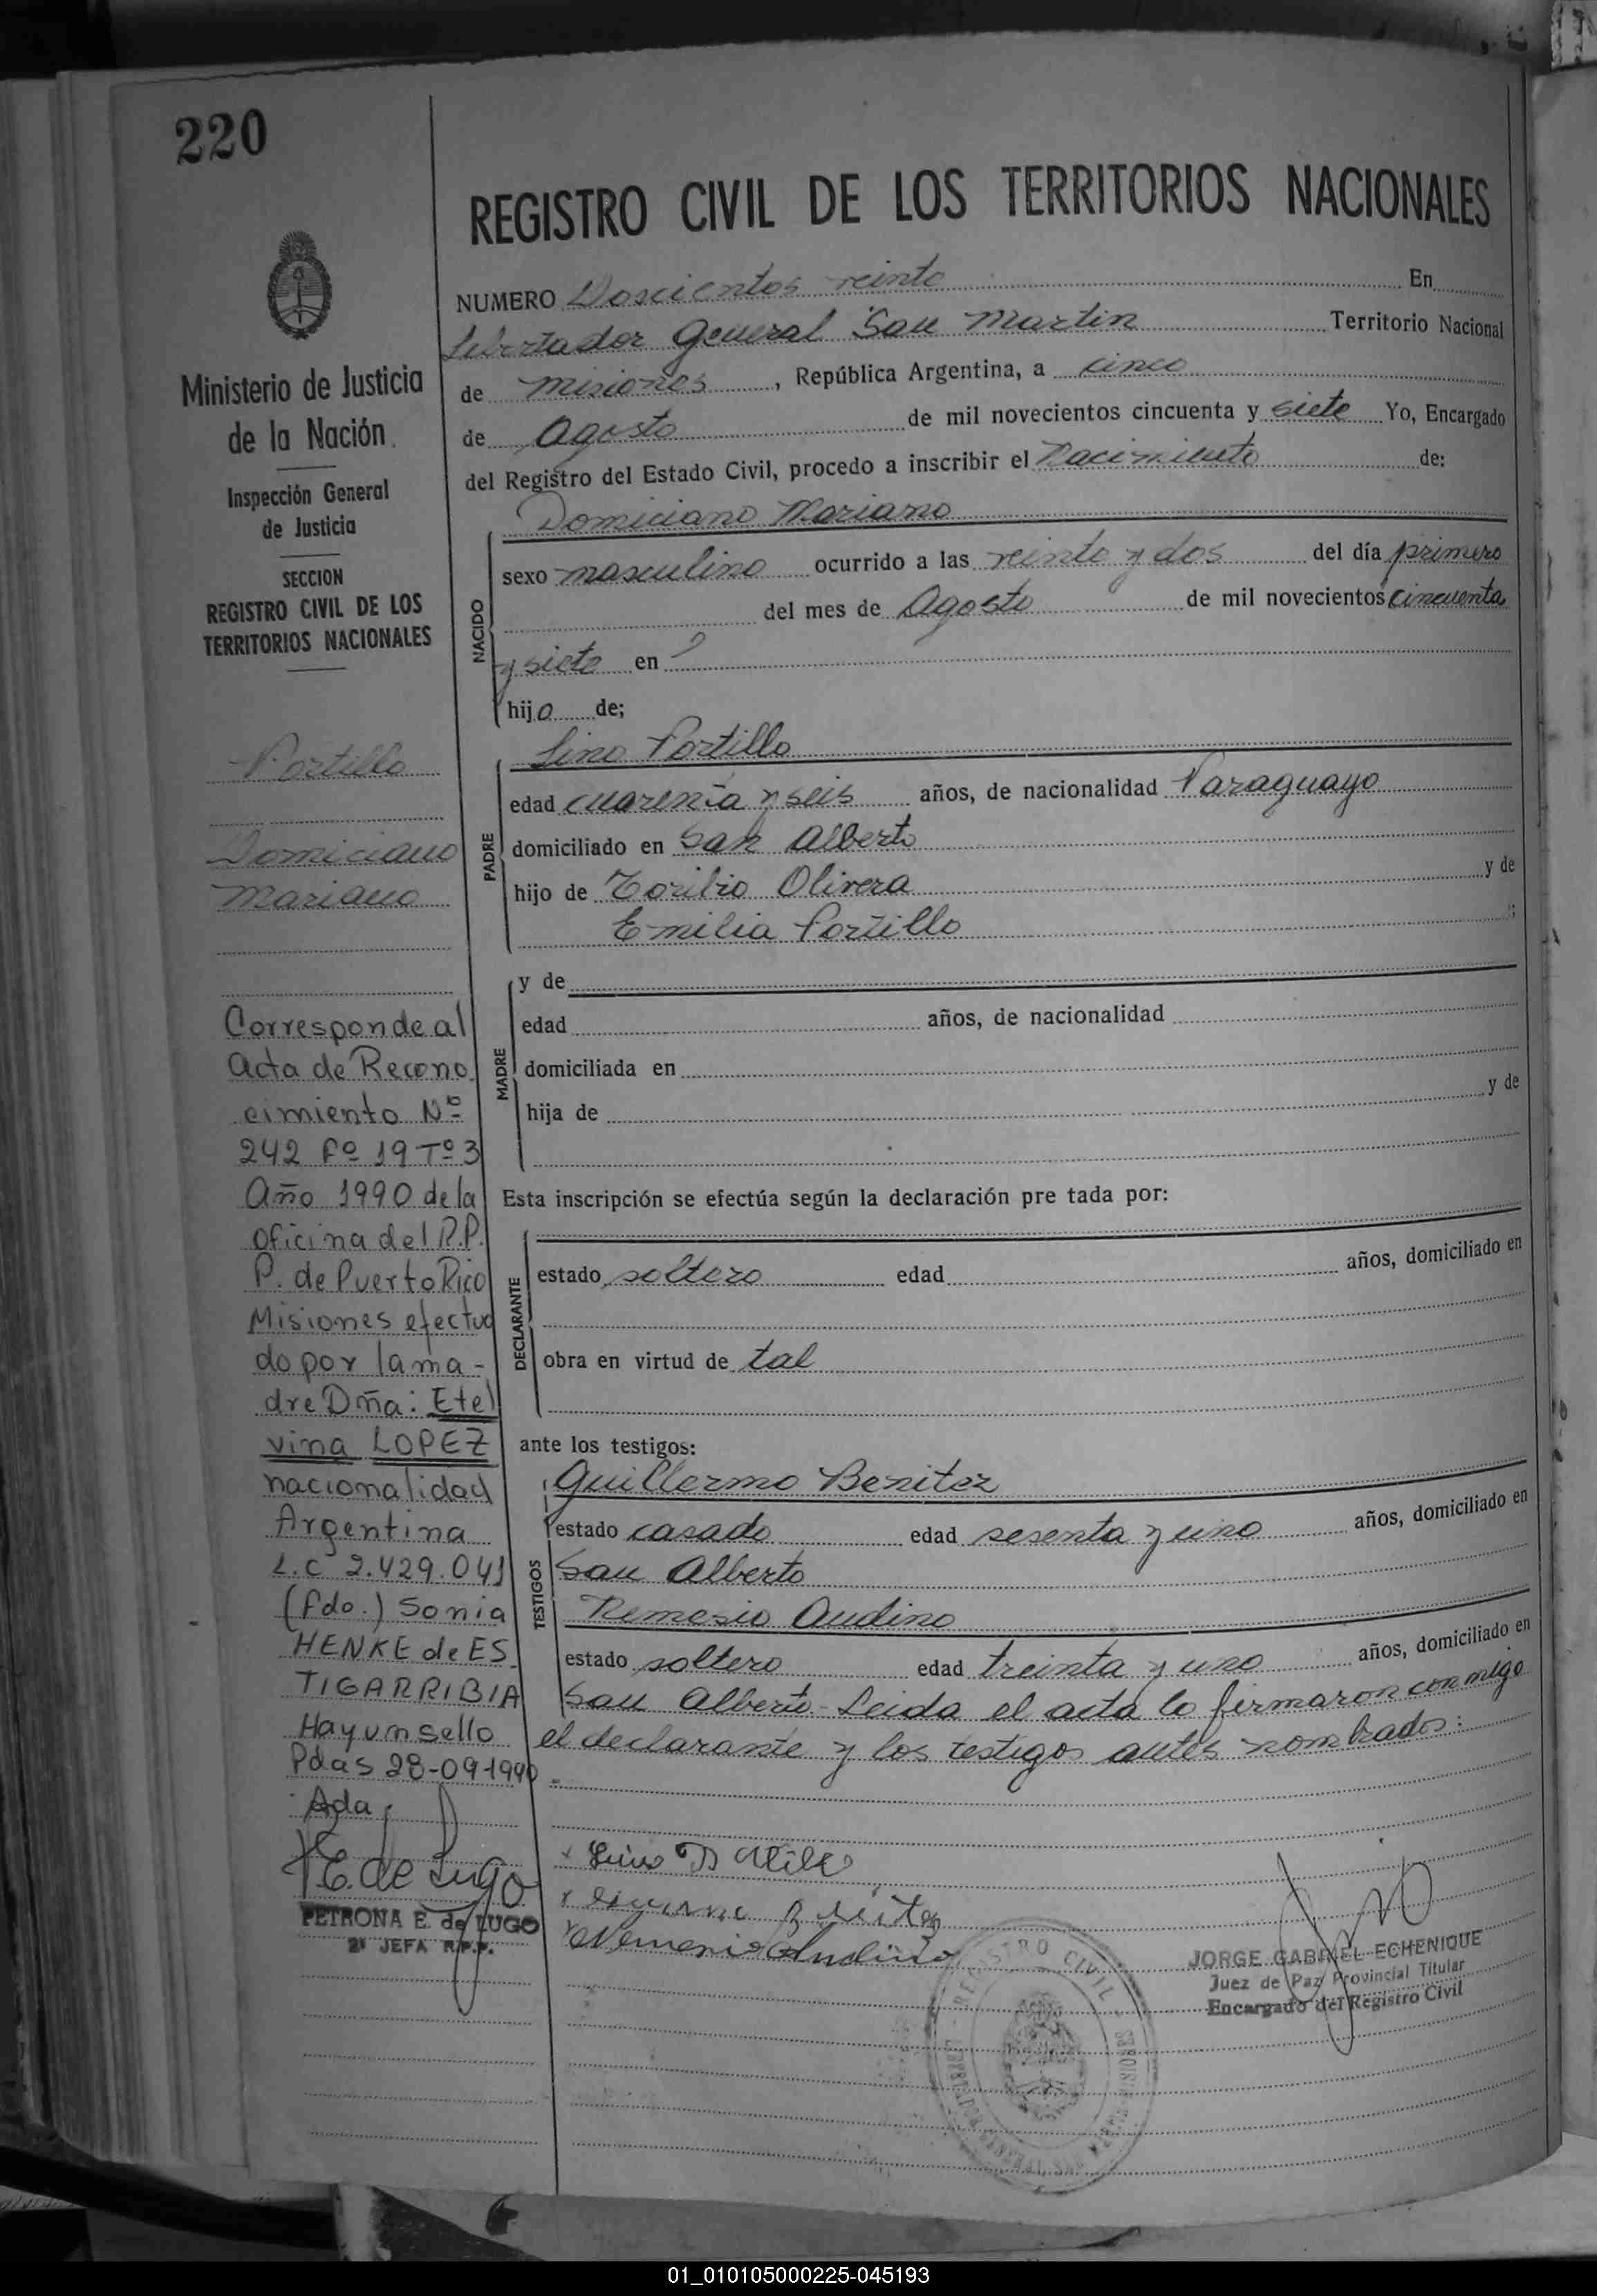 220
Ministerio de Justicia
de la Nación
Inspección General
de Justicia
SECCION
REGISTRO CIVIL DE LOS
TERRITORIOS NACIONALES
Portillo
Domiciano
Mariano
Corresponde al
Acta de Recono
cimiento Nº
242 Fº 19 Tº 3
Año 1990 de la
oficina del R.P.
P. de Puerto Rico
Misiones efectua
do por la ma-
dre Dña: Etel
vina LOPEZ
nacionalidad
Argentina
L.C 2.429.041
(Fdo.) Sonia
HENKE de ES
TIGARRIBIA
Hay un sello
Pdas 28-09-1990
Ada
E. de Lugo
PETRONA E. de LUGO
2ª JEFA R.P.P.
REGISTRO CIVIL DE LOS TERRITORIOS NACIONALES
NUMERO Doscientos veinte En
Libertador General San Martin Territorio Nacional
de Misiones, República Argentina, a cinco
de Agosto de mil novecientos cincuenta y siete Yo, Encargado
del Registro del Estado Civil, procedo a inscribir el Nacimiento de:
Domiciano Mariano
NACIDO
sexo masculino ocurrido a las veinte y dos del día primero
del mes de Agosto de mil novecientos cincuenta
y siete en
hijo de;
Lino Portillo
PADRE
edad cuarenta y seis años, de nacionalidad Paraguayo
domiciliado en San Alberto
hijo de Toribio Olivera y de
Emilia Portillo ;
MADRE
y de
edad años, de nacionalidad
domiciliada en
hija de y de
Esta inscripción se efectúa según la declaración pre tada por:
DECLARANTE
estado soltero edad años, domiciliado en
obra en virtud de tal
ante los testigos:
TESTIGOS
Guillermo Benitez
estado casado edad sesenta y uno años, domiciliado en
San Alberto
Nemesio Audino
estado soltero edad treinta y uno años, domiciliado en
San Alberto - Leida el acta lo firmaron conmigo
el declarante y los testigos antes nombrados:
Nemesio Audino
REGISTRO CIVIL
JORGE GABRIEL ECHENIQUE
Juez de Paz Provincial Titular
Encargado del Registro Civil
01_010105000225-045193